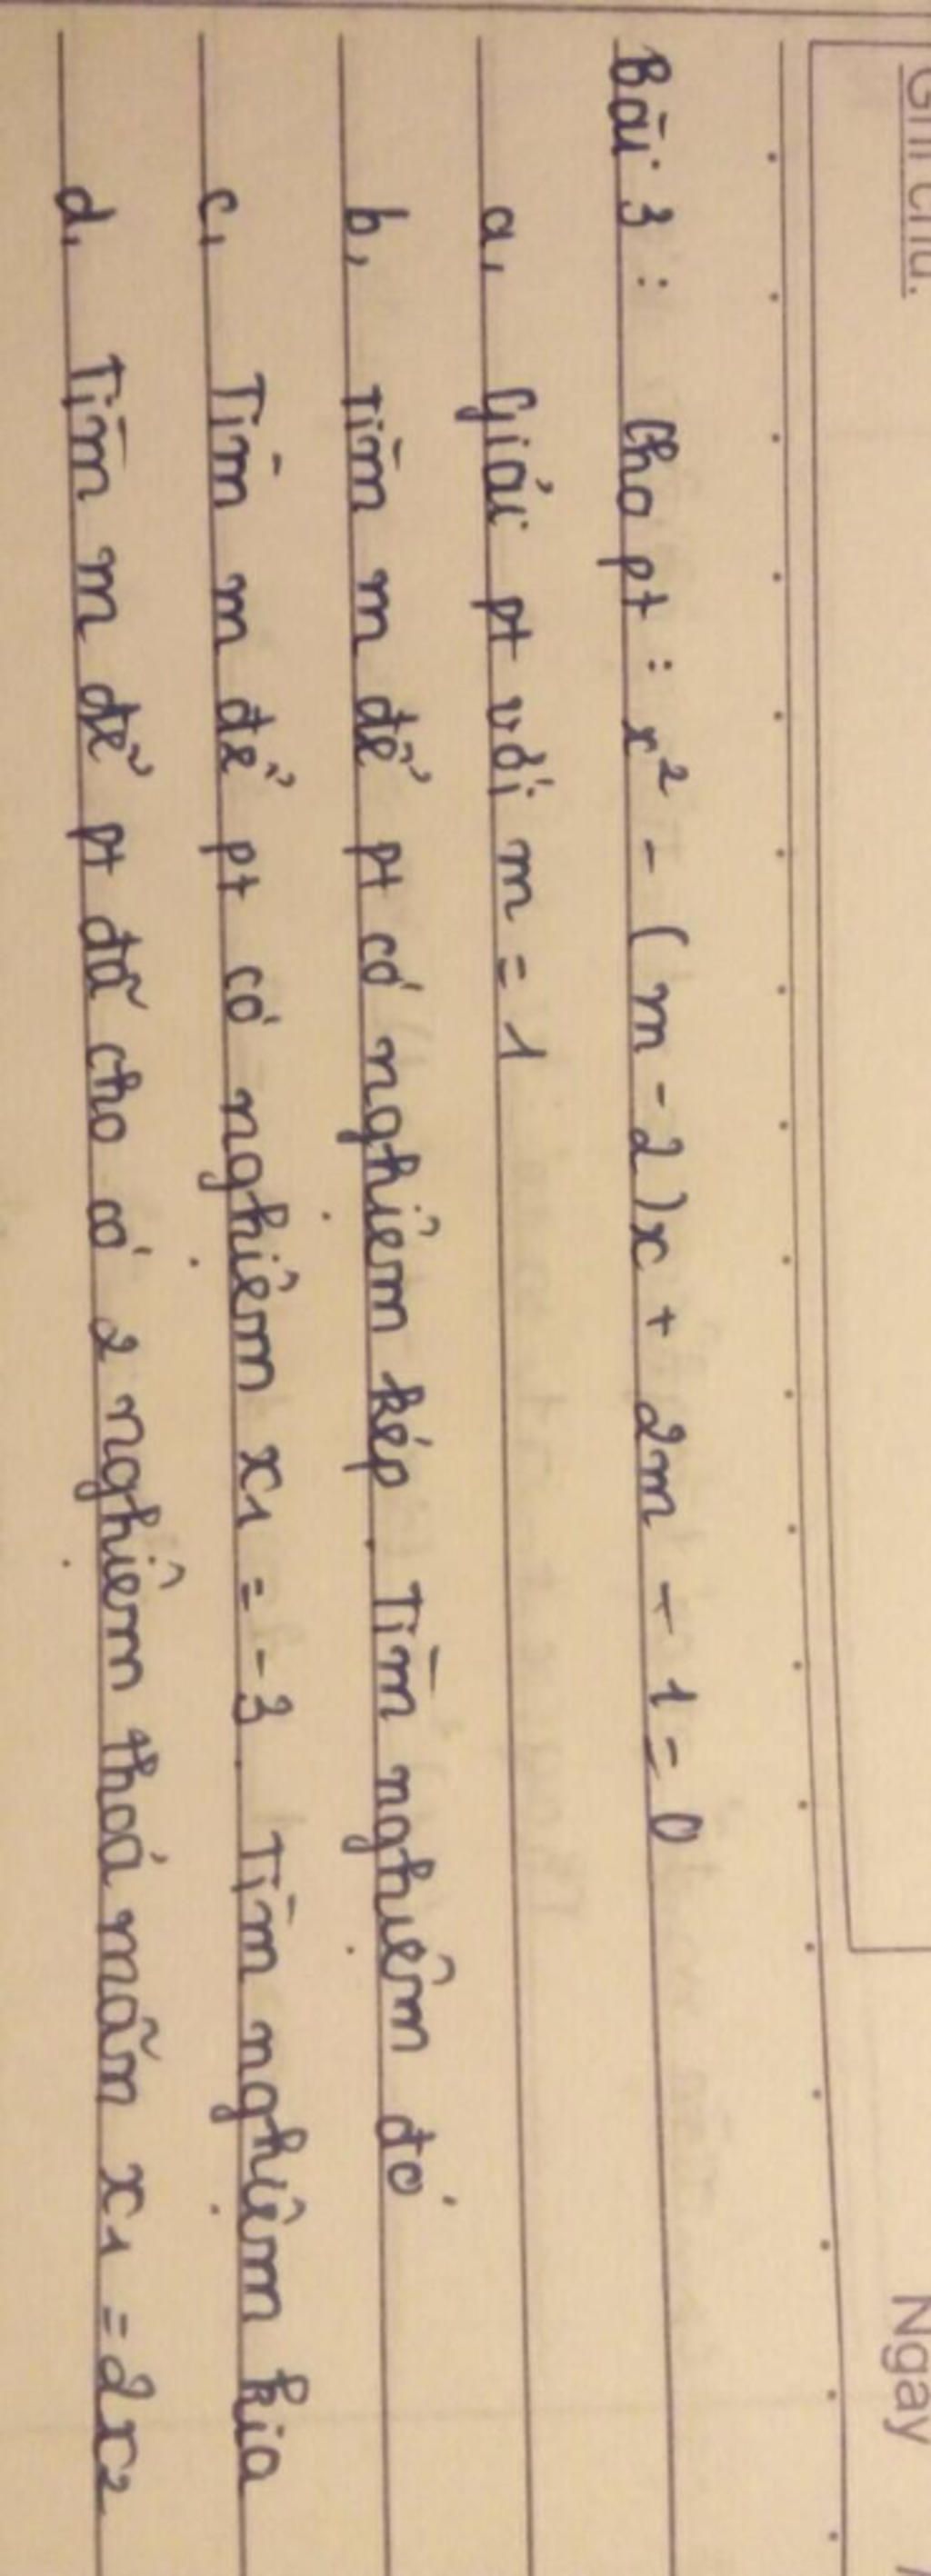 Ghi chú.
Ngay
Bài 3 : Cho pt : x² - (m - 2)x + 2m + 1 = 0
a, Giải pt với m = 1
b, Tìm m để pt có nghiệm kép. Tìm nghiệm đó
c, Tìm m để pt có nghiệm x₁ = -3. Tìm nghiệm kia
d, Tìm m để pt đã cho có 2 nghiệm thoả mãn x₁ = 2x₂